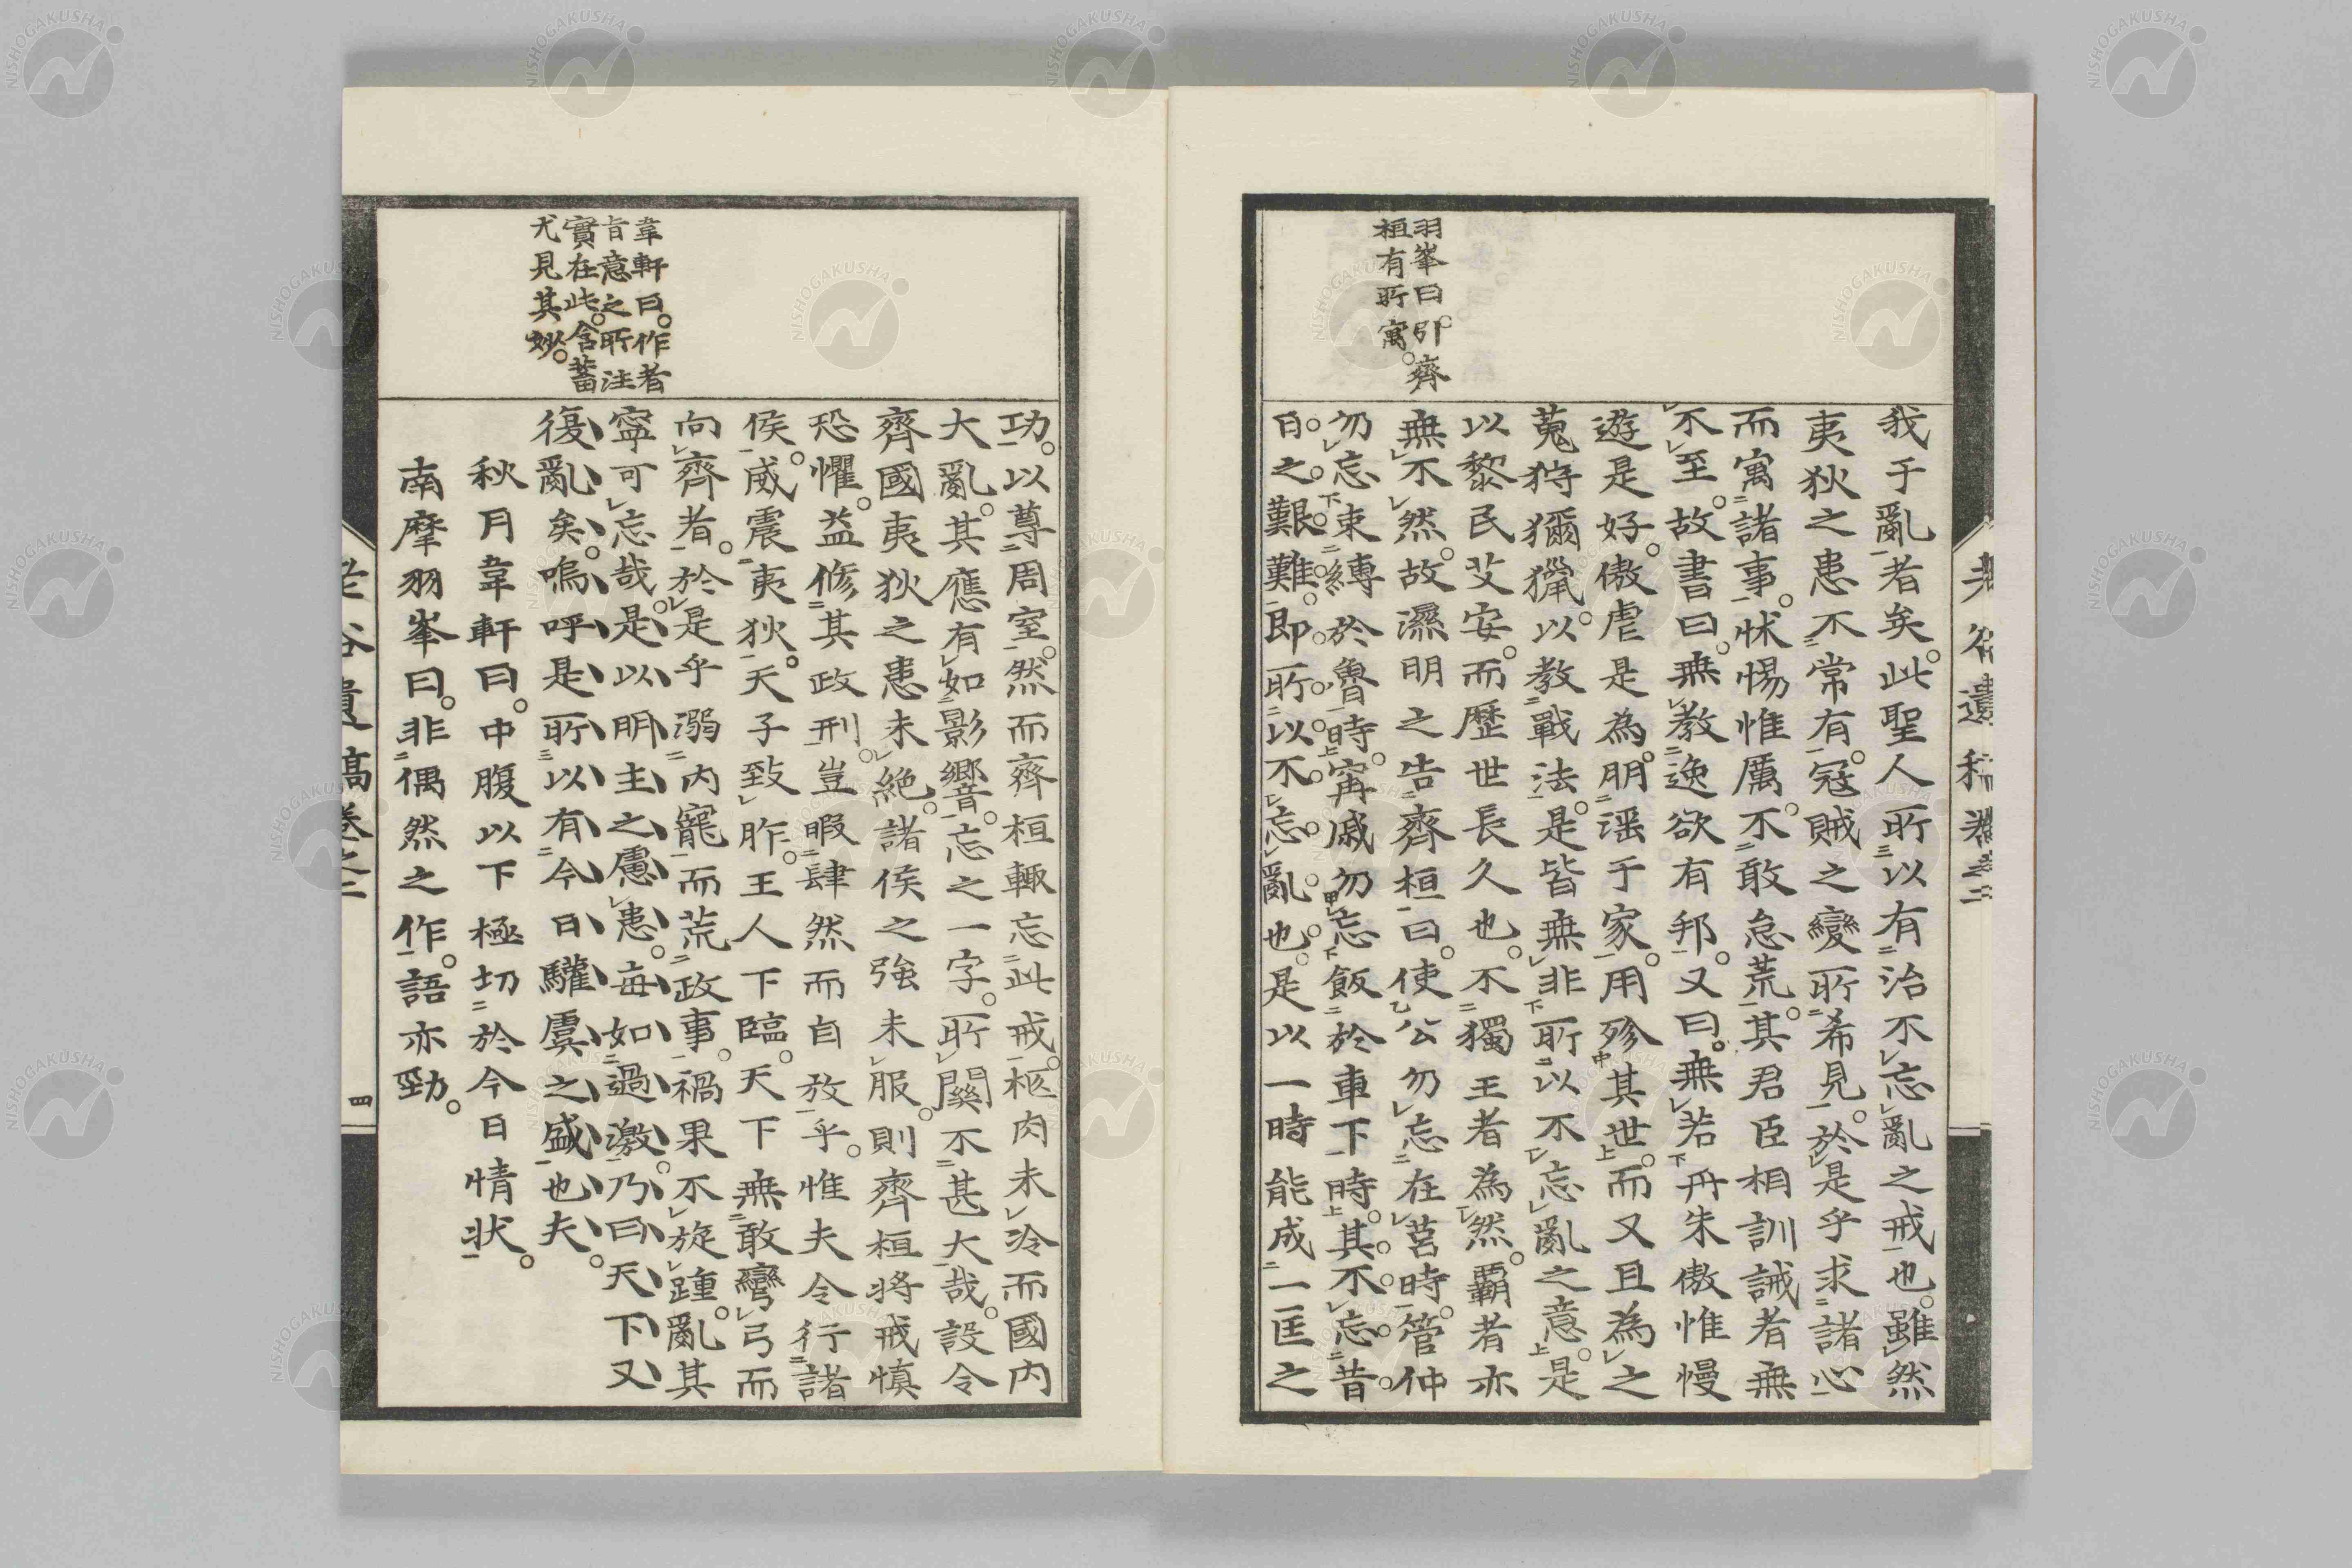 羽峯曰。引齊
桓有所寓。
我于亂者矣。此聖人所以有治不忘亂之戒也。雖然
夷狄之患不常有。冦賊之變所希見。於是乎求諸心
而寓諸事。怵惕惟厲。不敢怠荒。其君臣相訓誡者無
不至。故書曰。無教逸欲有邦。又曰。無若丹朱傲惟慢
遊是好。傲虐是為。朋淫于家。用殄其世。而又且為之
蒐狩獮獵。以教戰法。是皆無非所以不忘亂之意。是
以黎民艾安。而歷世長久也。不獨王者為然。覇者亦
無不然。故濕明之告齊桓曰。使公勿忘在莒時。管仲
勿忘束縛於魯時。甯戚勿忘飯於車下時。其不忘昔
日之艱難。即所以不忘亂也。是以一時能成一匡之
韋軒曰。作者
旨意之所注
實在此。含蓄
尤見其妙。
功。以尊周室。然而齊桓輙忘此戒。柩肉未冷而國内
大亂。其應有如影響。忘之一字。所關不甚大哉。設令
齊國夷狄之患未絶。諸侯之強未服。則齊桓將戒慎
恐懼。益修其政刑。豈暇肆然而自放乎。惟夫令行諸
侯。威震夷狄。天子致胙。王人下臨。天下無敢彎弓而
向齊者。於是乎溺内寵而荒政事。禍果不旋踵。亂其
寧可忘哉。是以明主之慮患。每如過激。乃曰天下又
復亂矣。嗚呼是所以有今日驩虞之盛也夫。
秋月韋軒曰。中腹以下極切於今日情状。
南摩羽峯曰。非偶然之作。語亦勁。
四